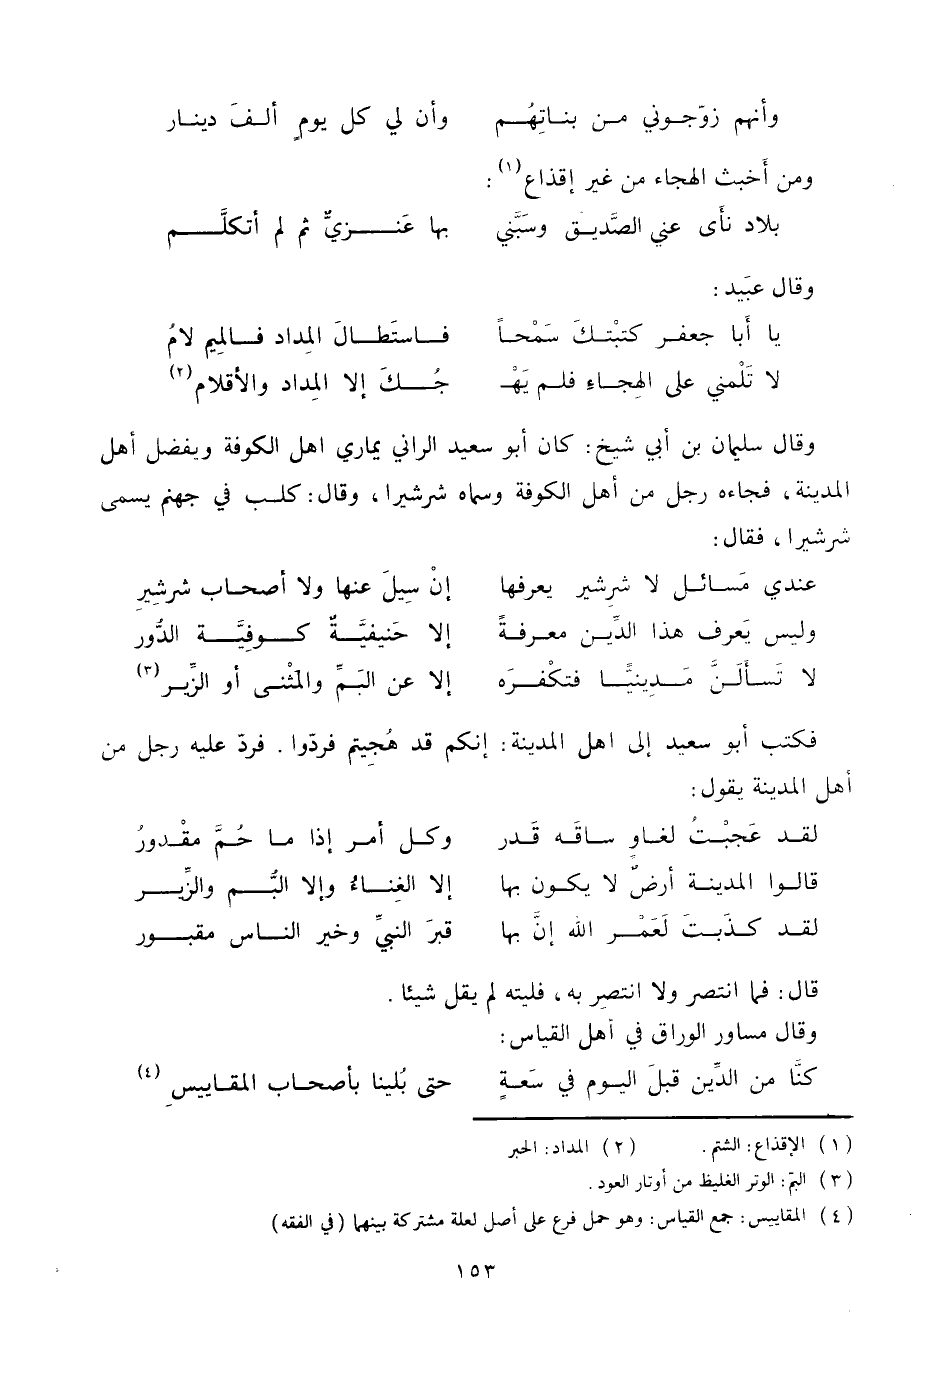 وأنهم زوّجوني من بناتِهُم وأن لي كل يومٍ ألفَ دينار
ومن أَخبث الهجاء من غير إقذاع(١) :
بلاد نأَى عني الصَّديق وسَبَّني بها عَنزيٌّ ثم لم أتكلَّم
وقال عبَيد :
يا أَبا جعفر كتبْتكَ سَمْحاً فاستَطالَ المِداد فالميم لامُ
لا تَلُمني على الهجاءِ فلم يَهْـ جُكَ إلا المِداد والأقلام(٢)
وقال سليمان بن أبي شيخ : كان أبو سعيد الراني يماري اهل الكوفة ويفضل أهل
المدينة ، فجاءه رجل من أهل الكوفة وسماه شرشيرا ، وقال : كلب في جهنم يسمى
شرشيرا ، فقال :
عندي مَسائل لا شرشير يعرفها إنْ سِيلَ عنها ولا أصحاب شرشيرِ
وليس يَعرف هذا الدِّين معرفةً إلا حَنيفيَّةٌ كوفيَّة الدُّور
لا تَسأَلَنَّ مَدِينيًّا فتكْفرَه إلا عن البَمِّ والمثْنى أو الزِّير(٣)
فكتب أبو سعيد إلى اهل المدينة : إنكم قد هُجيتم فردّوا . فردّ عليه رجل من
أهل المدينة يقول :
لقد عَجبْتُ لغاوٍ ساقَه قَدر وكل أمر إذا ما حُمَّ مقْدورُ
قالوا المدينة أرضٌ لا يكون بها إلا الغِناءُ وإلا البُم والزِّير
لقد كذَبتَ لَعَمْر الله إنَّ بها قبرَ النبيِّ وخير الناس مقبور
قال : فما انتصر ولا انتصر به ، فليته لم يقل شيئا .
وقال مساور الوراق في أهل القياس :
كنَّا من الدِّين قبلَ اليوم في سَعةٍ حتى بُلينا بأصحاب المقاييسِ(٤)
(١) الإقذاع : الشتم . (٢) المداد : الحبر
(٣) البّم : الوتر الغليظ من أوتار العود .
(٤) المقاييس : جمع القياس : وهو حمل فرع على أصل لعلة مشتركة بينهما (في الفقه)
١٥٣